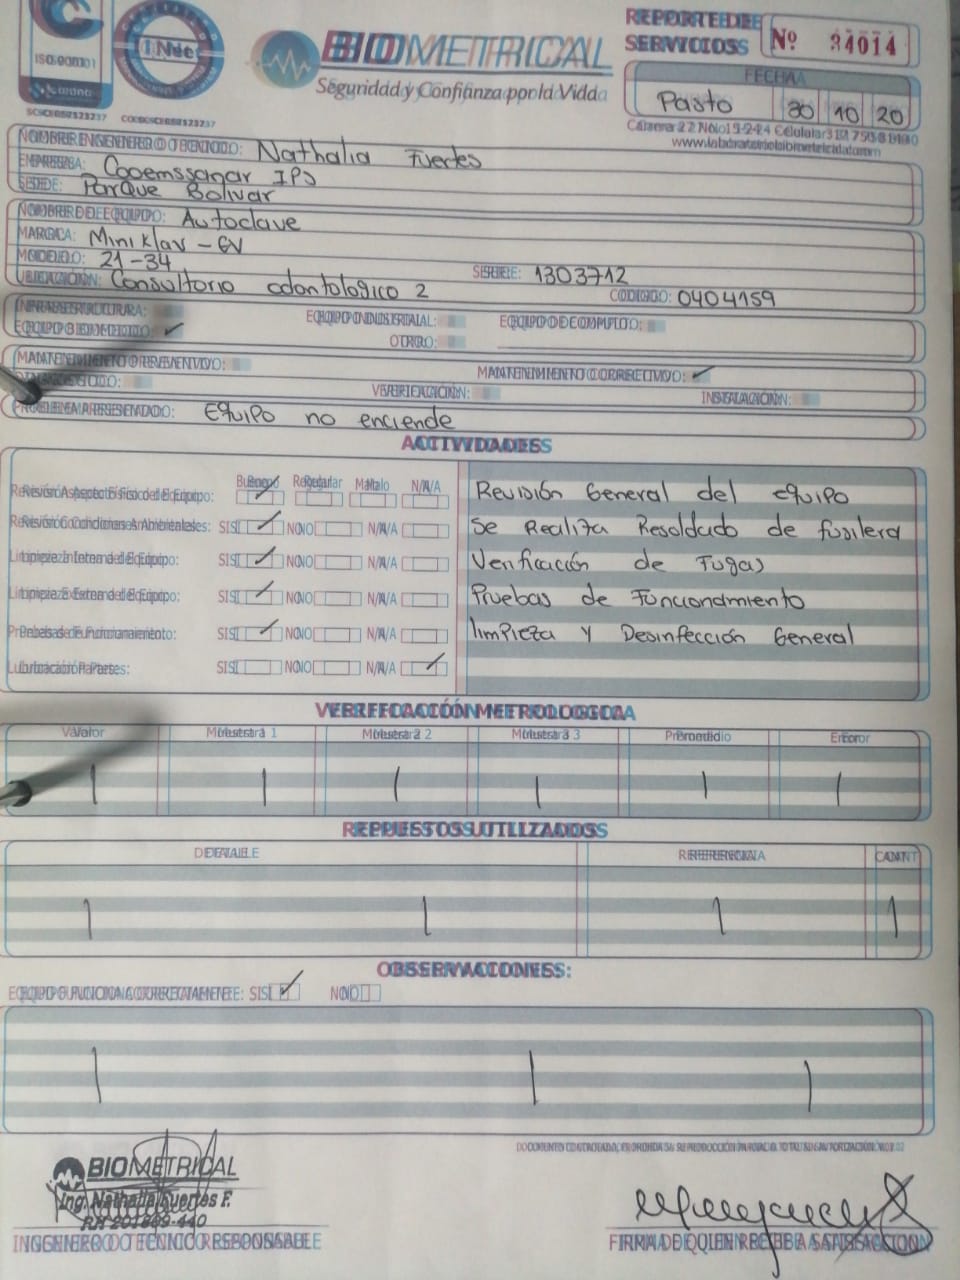 ISO 9001
IQNet
BIOMETRICAL
Seguridad y Confianza por la Vida
REPORTE DE
SERVICIOS
Nº 34014
FECHA
Pasto 30 10 20
www.laboratoriobiometrical.com
NOMBRE INGENIERO O TECNICO: Nathalia Fuertes
EMPRESA: Cooemssanar IPS
SEDE: Parque Bolivar
NOMBRE DE EQUIPO: Autoclave
MARCA: Mini Klav - GV
MODELO: 21-34
SERIE: 1303712
UBICACIÓN: Consultorio odontologico 2
CODIGO: 0404159
INFRAESTRUCTURA:
EQUIPO INDUSTRIAL:
EQUIPO DE COMPUTO:
EQUIPO BIOMEDICO: ✓
OTRO:
MANTENIMIENTO PREVENTIVO:
MANTENIMIENTO CORRECTIVO: ✓
DIAGNOSTICO:
VERIFICACIÓN:
INSTALACIÓN:
PROBLEMA PRESENTADO: Equipo no enciende
ACTIVIDADES
Bueno Regular Malo N/A
Revisión Aspecto Físico del Equipo:
Revisión Condiciones Ambientales: SI NO N/A
Limpieza Interna del Equipo: SI NO N/A
Limpieza Externa del Equipo: SI NO N/A
Pruebas de Funcionamiento: SI NO N/A
Lubricación Partes: SI NO N/A
Revisión General del equipo
Se Realiza Resoldado de fusilera
Verificación de Fugas
Pruebas de Funcionamiento
limpieza y Desinfección General
VERIFICACIÓN METROLOGICA
Valor Muestra 1 Muestra 2 Muestra 3 Promedio Error
REPUESTOS UTILIZADOS
DETALLE REFERENCIA CANT
OBSERVACIONES:
EQUIPO FUNCIONA CORRECTAMENTE: SI NO
BIOMETRICAL
Ing. Nathalia Fuertes F.
INGENIERO O TECNICO RESPONSABLE
FIRMA DE QUIEN RECIBE A SATISFACCION